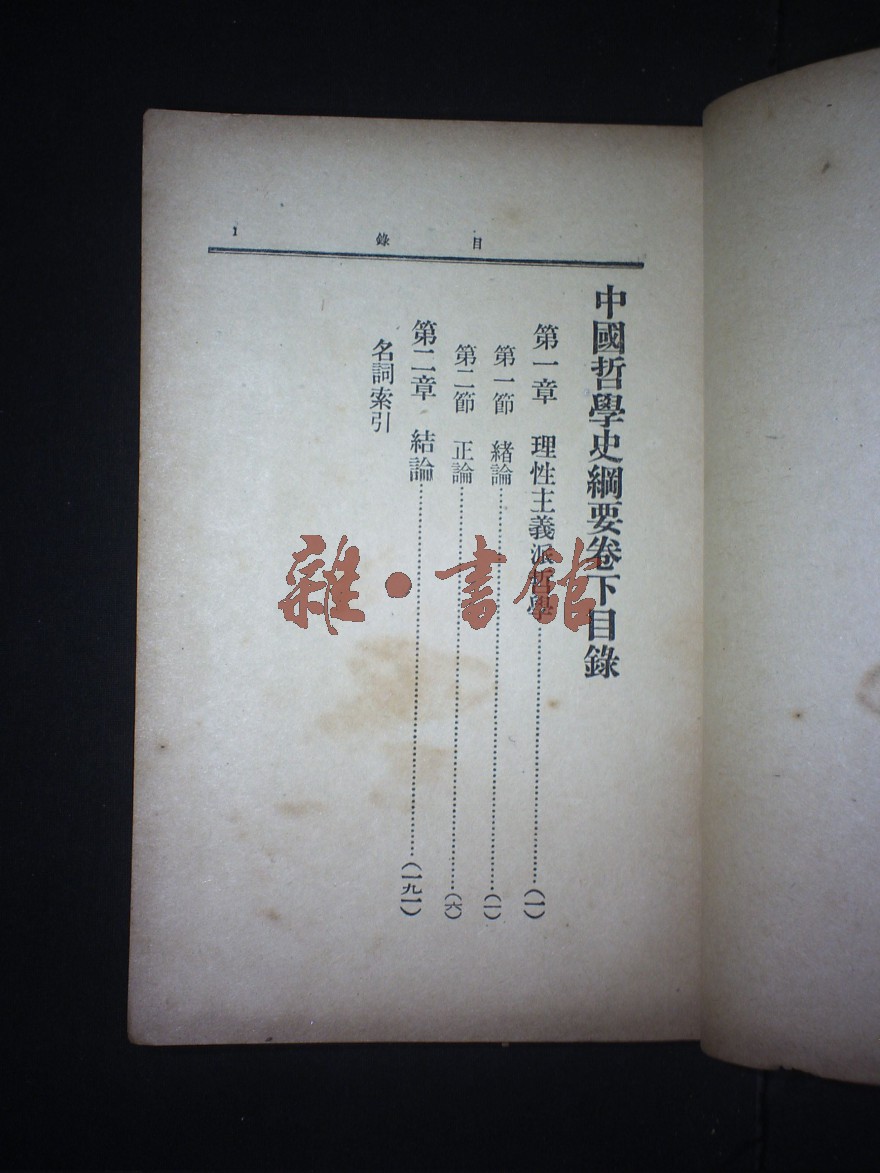 目錄
1
中國哲學史綱要卷下目錄
第一章 理性主義派哲學……(一)
第一節 緒論……(一)
第二節 正論……(六)
第二章 結論……(一九一)
名詞索引
雜·書館